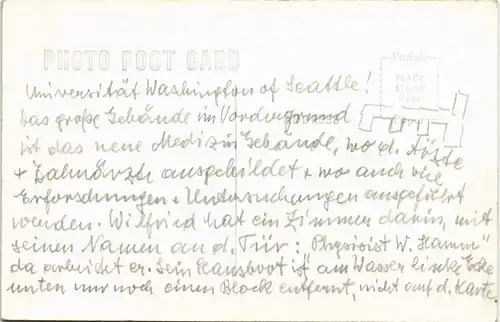 PHOTO POST CARD
Kodak
PLACE
STAMP
HERE
Universität Washington of Seattle!
Das große Gebäude im Vordergrund
ist das neue Medizin Gebäude, wo d. Ärzte
+ Zahnärzte ausgebildet + wo auch viele
Erforschungen + Untersuchungen ausgeführt
werden. Wilfried hat ein Zimmer darin, mit
seinen Namen an d. Tür: "Physicist W. Hamm"
da arbeitet er. Sein Hausboot ist am Wasser linke Ecke
unten nur noch einen Block entfernt, nicht auf d. Karte.